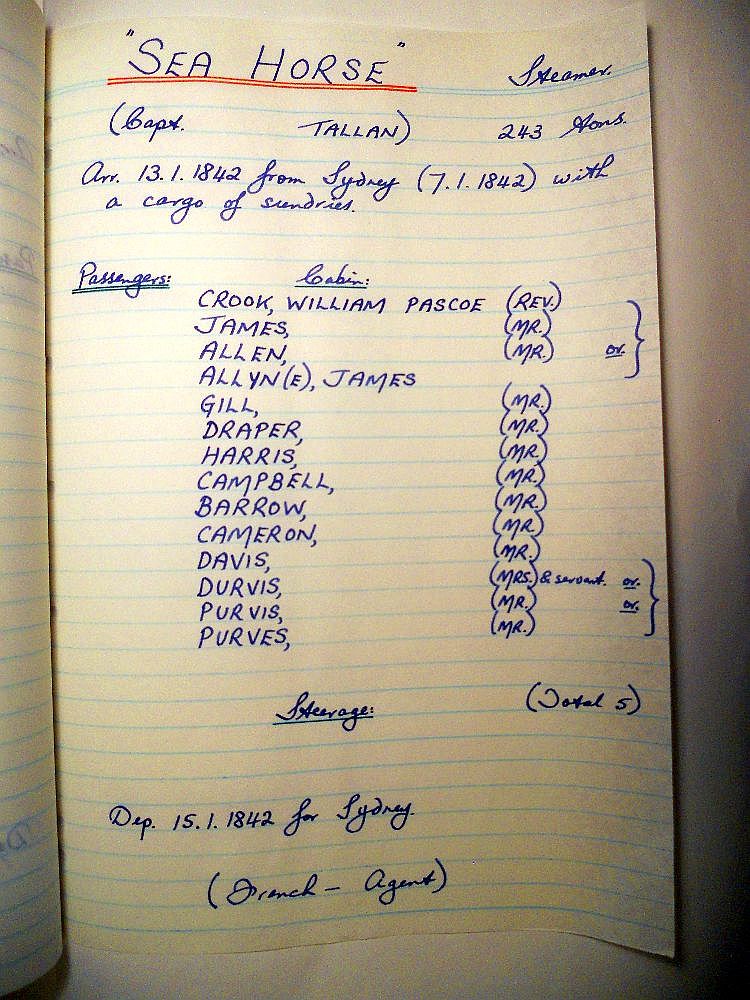 "SEA HORSE" Steamer.
(Capt. TALLAN) 243 Tons.
Arr. 13.1.1842 from Sydney (7.1.1842) with
a cargo of sundries.
Passengers: Cabin:
CROOK, WILLIAM PASCOE (REV.)
JAMES, (MR.)
ALLEN, (MR.) or. }
ALLYN(E), JAMES
GILL, (MR.)
DRAPER, (MR.)
HARRIS, (MR.)
CAMPBELL, (MR.)
BARROW, (MR.)
CAMERON, (MR.)
DAVIS, (MR.)
DURVIS, (MRS.) & servant. or. }
PURVIS, (MR.) or.
PURVES, (MR.)
Steerage: (Total 5)
Dep. 15.1.1842 for Sydney.
(French - Agent)